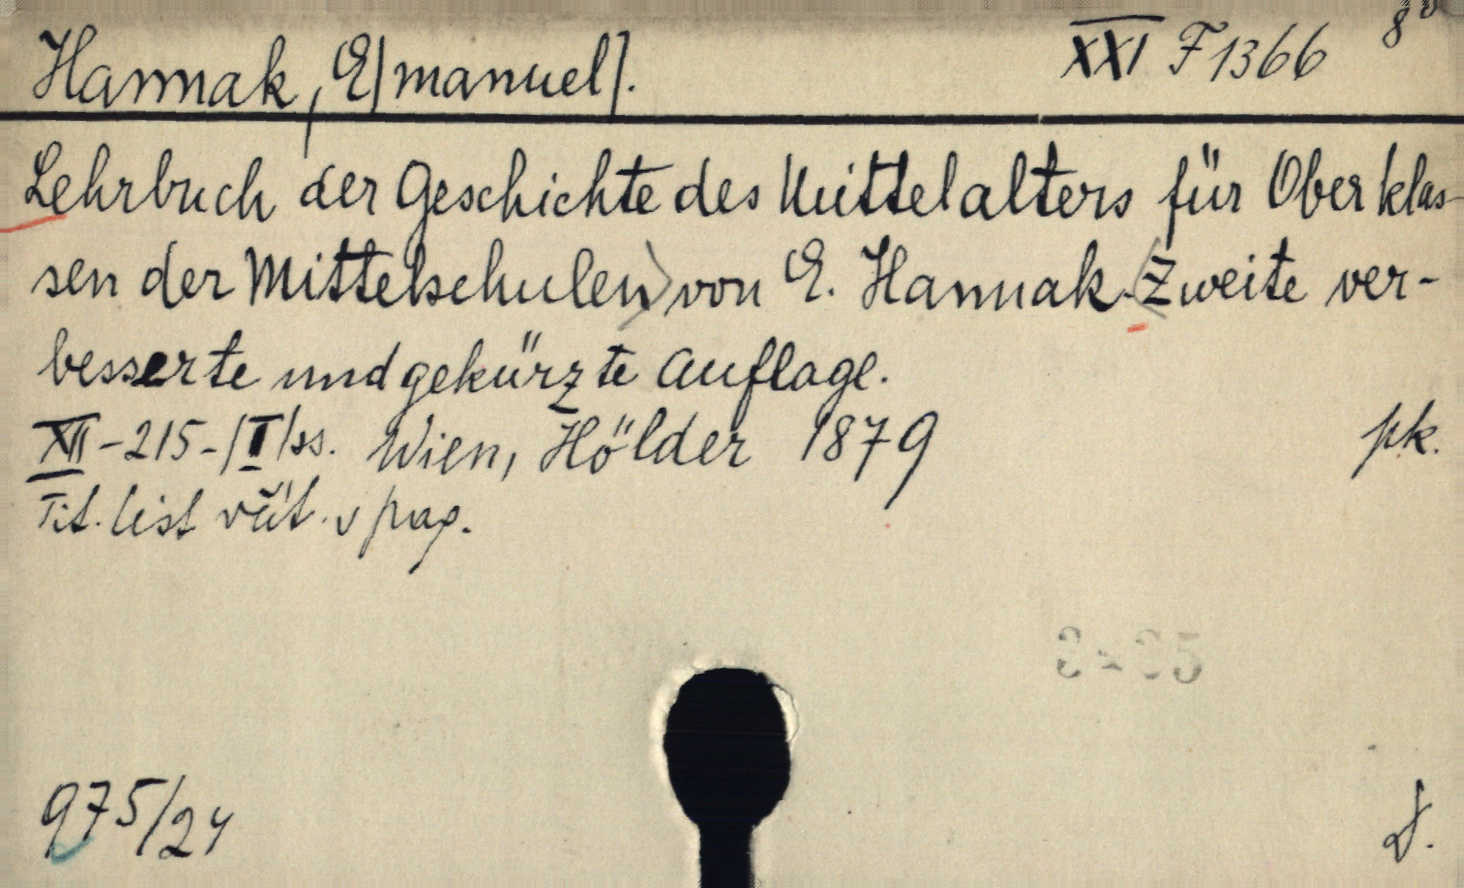 Hannak, E[manuel].
XXI F 1366 8°
Lehrbuch der Geschichte des Mittelalters für Oberklas-
sen der Mittelschulen) von E. Hannak. (Zweite ver-
besserte und gekürzte Auflage.
XII-215-[I] ss. Wien, Hölder 1879 pk.
Tit. list včít. v pag.
975/24